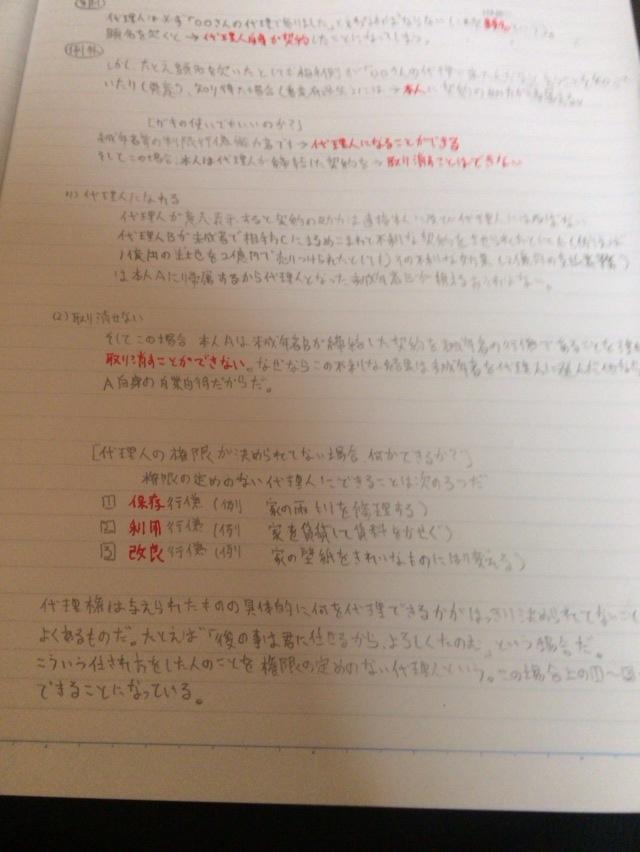 原則
代理人は必ず「○○さんの代理で参りました」と
顕名を欠くと→代理人自身が契約したことになってしまう。
例外
しかし、たとえ顕名を欠いたとしても相手側が「○○さんの代理
いたり(悪意)、知り得た場合(善意有過失)には→本人に契約の効力が
[ガキの使いでもいいのか?]
未成年者等の制限行為能力者でも→代理人になることができる
そしてこの場合、本人は代理人が締結した契約を→取り消すことはできない
(1) 代理人になれる
代理人が意思表示すると契約の効力は直接本人に及び代理人には及ばない
代理人Bが未成年で相手方Cにまるめこまれて不利な契約をさせられたとしても
1億円の土地を2億円で売りつけられたとしても)その不利な効果
は本人Aに帰属するから代理人となった未成年者Bが
(2) 取り消せない
そしてこの場合 本人Aは未成年者Bが締結した契約を未成年者の行為であることを理由
取り消すことができない。なぜならこの不利な結果は未成年者を代理人に選んだ
A自身の自業自得だからだ。
[代理人の権限が決められてない場合、何ができるか?]
権限の定めのない代理人にできることは次の3つだ
1 保存行為 (例 家の雨もりを修理する)
2 利用行為 (例 家を賃貸して賃料をかせぐ)
3 改良行為 (例 家の壁紙をきれいなものにはり変える)
代理権は与えられたものの具体的に何を代理できるかがはっきり決められてないこと
よくあるものだ。たとえば「後の事は君に任せるから、よろしくたのむ」という場合だ。
こういう任され方をした人のことを権限の定めのない代理人という。この場合上の①〜③
できることになっている。